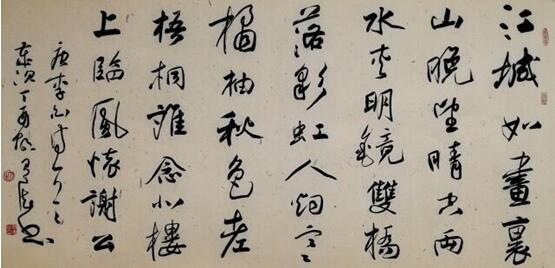 江城如畫裏
山晚望晴空兩
水夾明鏡雙橋
落彩虹人烟寒
橘柚秋色老
梧桐誰念北樓
上臨風懷謝公
唐李白詩一首
歲次丁酉